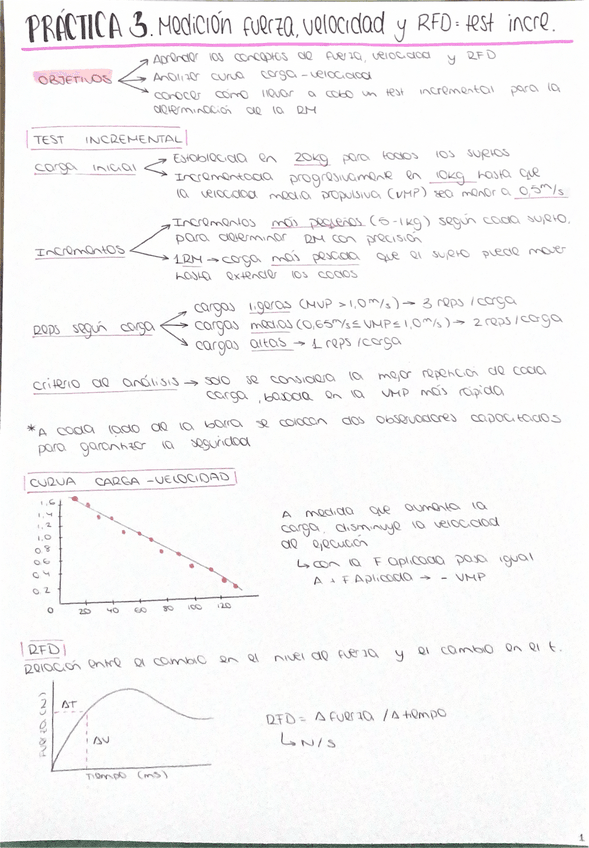 PRÁCTICA 3. Medición fuerza, velocidad y RFD: test incre.
OBJETIVOS
Aprender los conceptos de fuerza, velocidad y RFD
Analizar curva carga-velocidad
conocer cómo llevar a cabo un test incremental para la
determinación de la RM
TEST INCREMENTAL
carga inicial
Establecida en 20kg para todos los sujetos
Incrementada progresivamente en 10kg hasta que
la velocidad media propulsiva (VMP) sea menor a 0,5m/s
Incrementos
Incrementos más pequeños (5-1kg) según cada sujeto,
para determinar RM con precisión
1RM → carga más pesada que el sujeto puede mover
hasta extender los codos
Reps según carga
cargas ligeras (MVP > 1,0m/s) → 3 reps/carga
cargas medias (0,65m/s ≤ VMP ≤ 1,0m/s) → 2 reps/carga
cargas altas → 1 reps/carga
criterio de análisis → solo se considera la mejor repetición de cada
carga, basada en la VMP más rápida
*A cada lado de la barra se colocan dos observadores capacitados
para garantizar la seguridad
CURVA CARGA-VELOCIDAD
1,6
1,4
1,2
1,0
0,8
0,6
0,4
0,2
0
20 40 60 80 100 120
A medida que aumenta la
carga, disminuye la velocidad
de ejecución
↳ con la F aplicada pasa igual
A + F Aplicada → - VMP
RFD
Relación entre el cambio en el nivel de fuerza y el cambio en el t.
Fuerza (N)
ΔT
ΔV
Tiempo (ms)
RFD = Δ fuerza / Δ tiempo
↳ N/S
1